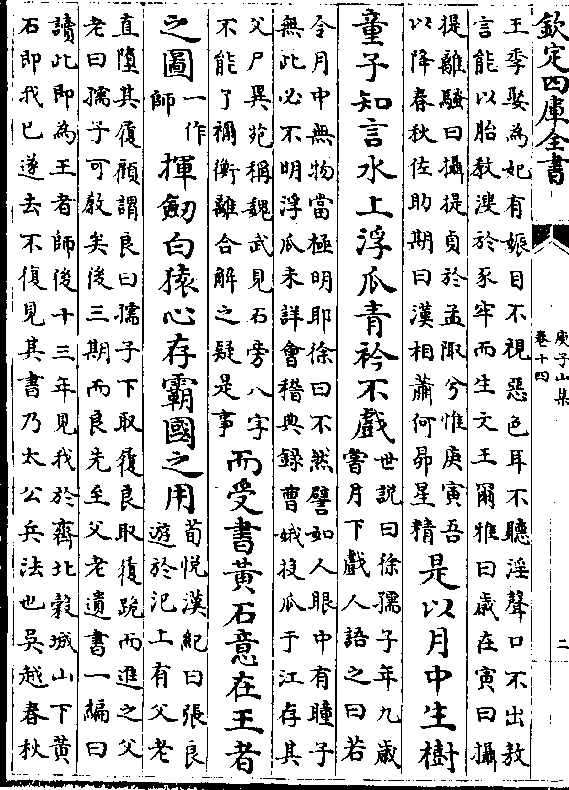 欽定四庫全書
庾子山集
卷十四
二
王季娶為妃有娠目不視惡色耳不聽淫聲口不出敖
言能以胎教溲於豕牢而生文王爾雅曰歲在寅曰攝
提離騷曰攝提貞於孟陬兮惟庚寅吾
以降春秋佐助期曰漢相蕭何昴星精
是以月中生樹
童子知言水上浮瓜青衿不戲
世說曰徐孺子年九歲
嘗月下戲人語之曰若
令月中無物當極明耶徐曰不然譬如人眼中有瞳子
無此必不明浮瓜未詳會稽典錄曹娥投瓜于江存其
父尸異苑稱魏武見石旁八字
不能了禰衡離合解之疑是事
而受書黃石意在王者
之圖
一作
師
揮劒白猿心存霸國之用
荀悅漢紀曰張良
遊於汜上有父老
直墮其履顧謂良曰孺子下取履良取履跪而進之父
老曰孺子可教矣後三期而良先至父老遺書一編曰
讀此即為王者師後十三年見我於齊北穀城山下黃
石即我已遂去不復見其書乃太公兵法也吳越春秋